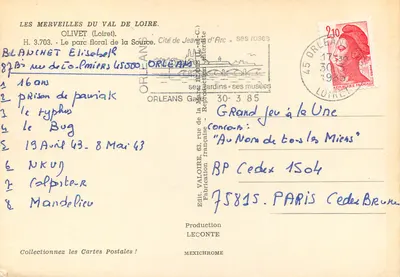 LES MERVEILLES DU VAL DE LOIRE.
OLIVET (Loiret).
H. 3.703. - Le parc floral de la Source.
BLANCHET Elisabeth
87 Bis rue de Colmiers 45000 ORLEANS
1 16 ans
2 prison de pawiak
3 le typhus
4 le Bug
5 19 Avril 43. 8 Mai 43
6 NKVD
7 Colpiteur
8 Mandelieu
Collectionnez les Cartes Postales !
Edit. VALOIRE,
Fabrication française
Reproduction interdite
Production
LECONTE
MEXICHROME
ORLEANS
Cité de Jeanne d'Arc
ses roses
ses jardins - ses musées
ORLEANS Gare
30-3 85
45 ORLEANS
LOIRET
2,20
Grand Jeu à la Une
Concours:
"Au Nom de tous les Miens"
BP Cedex 1504
75815. PARIS Cedex Brune